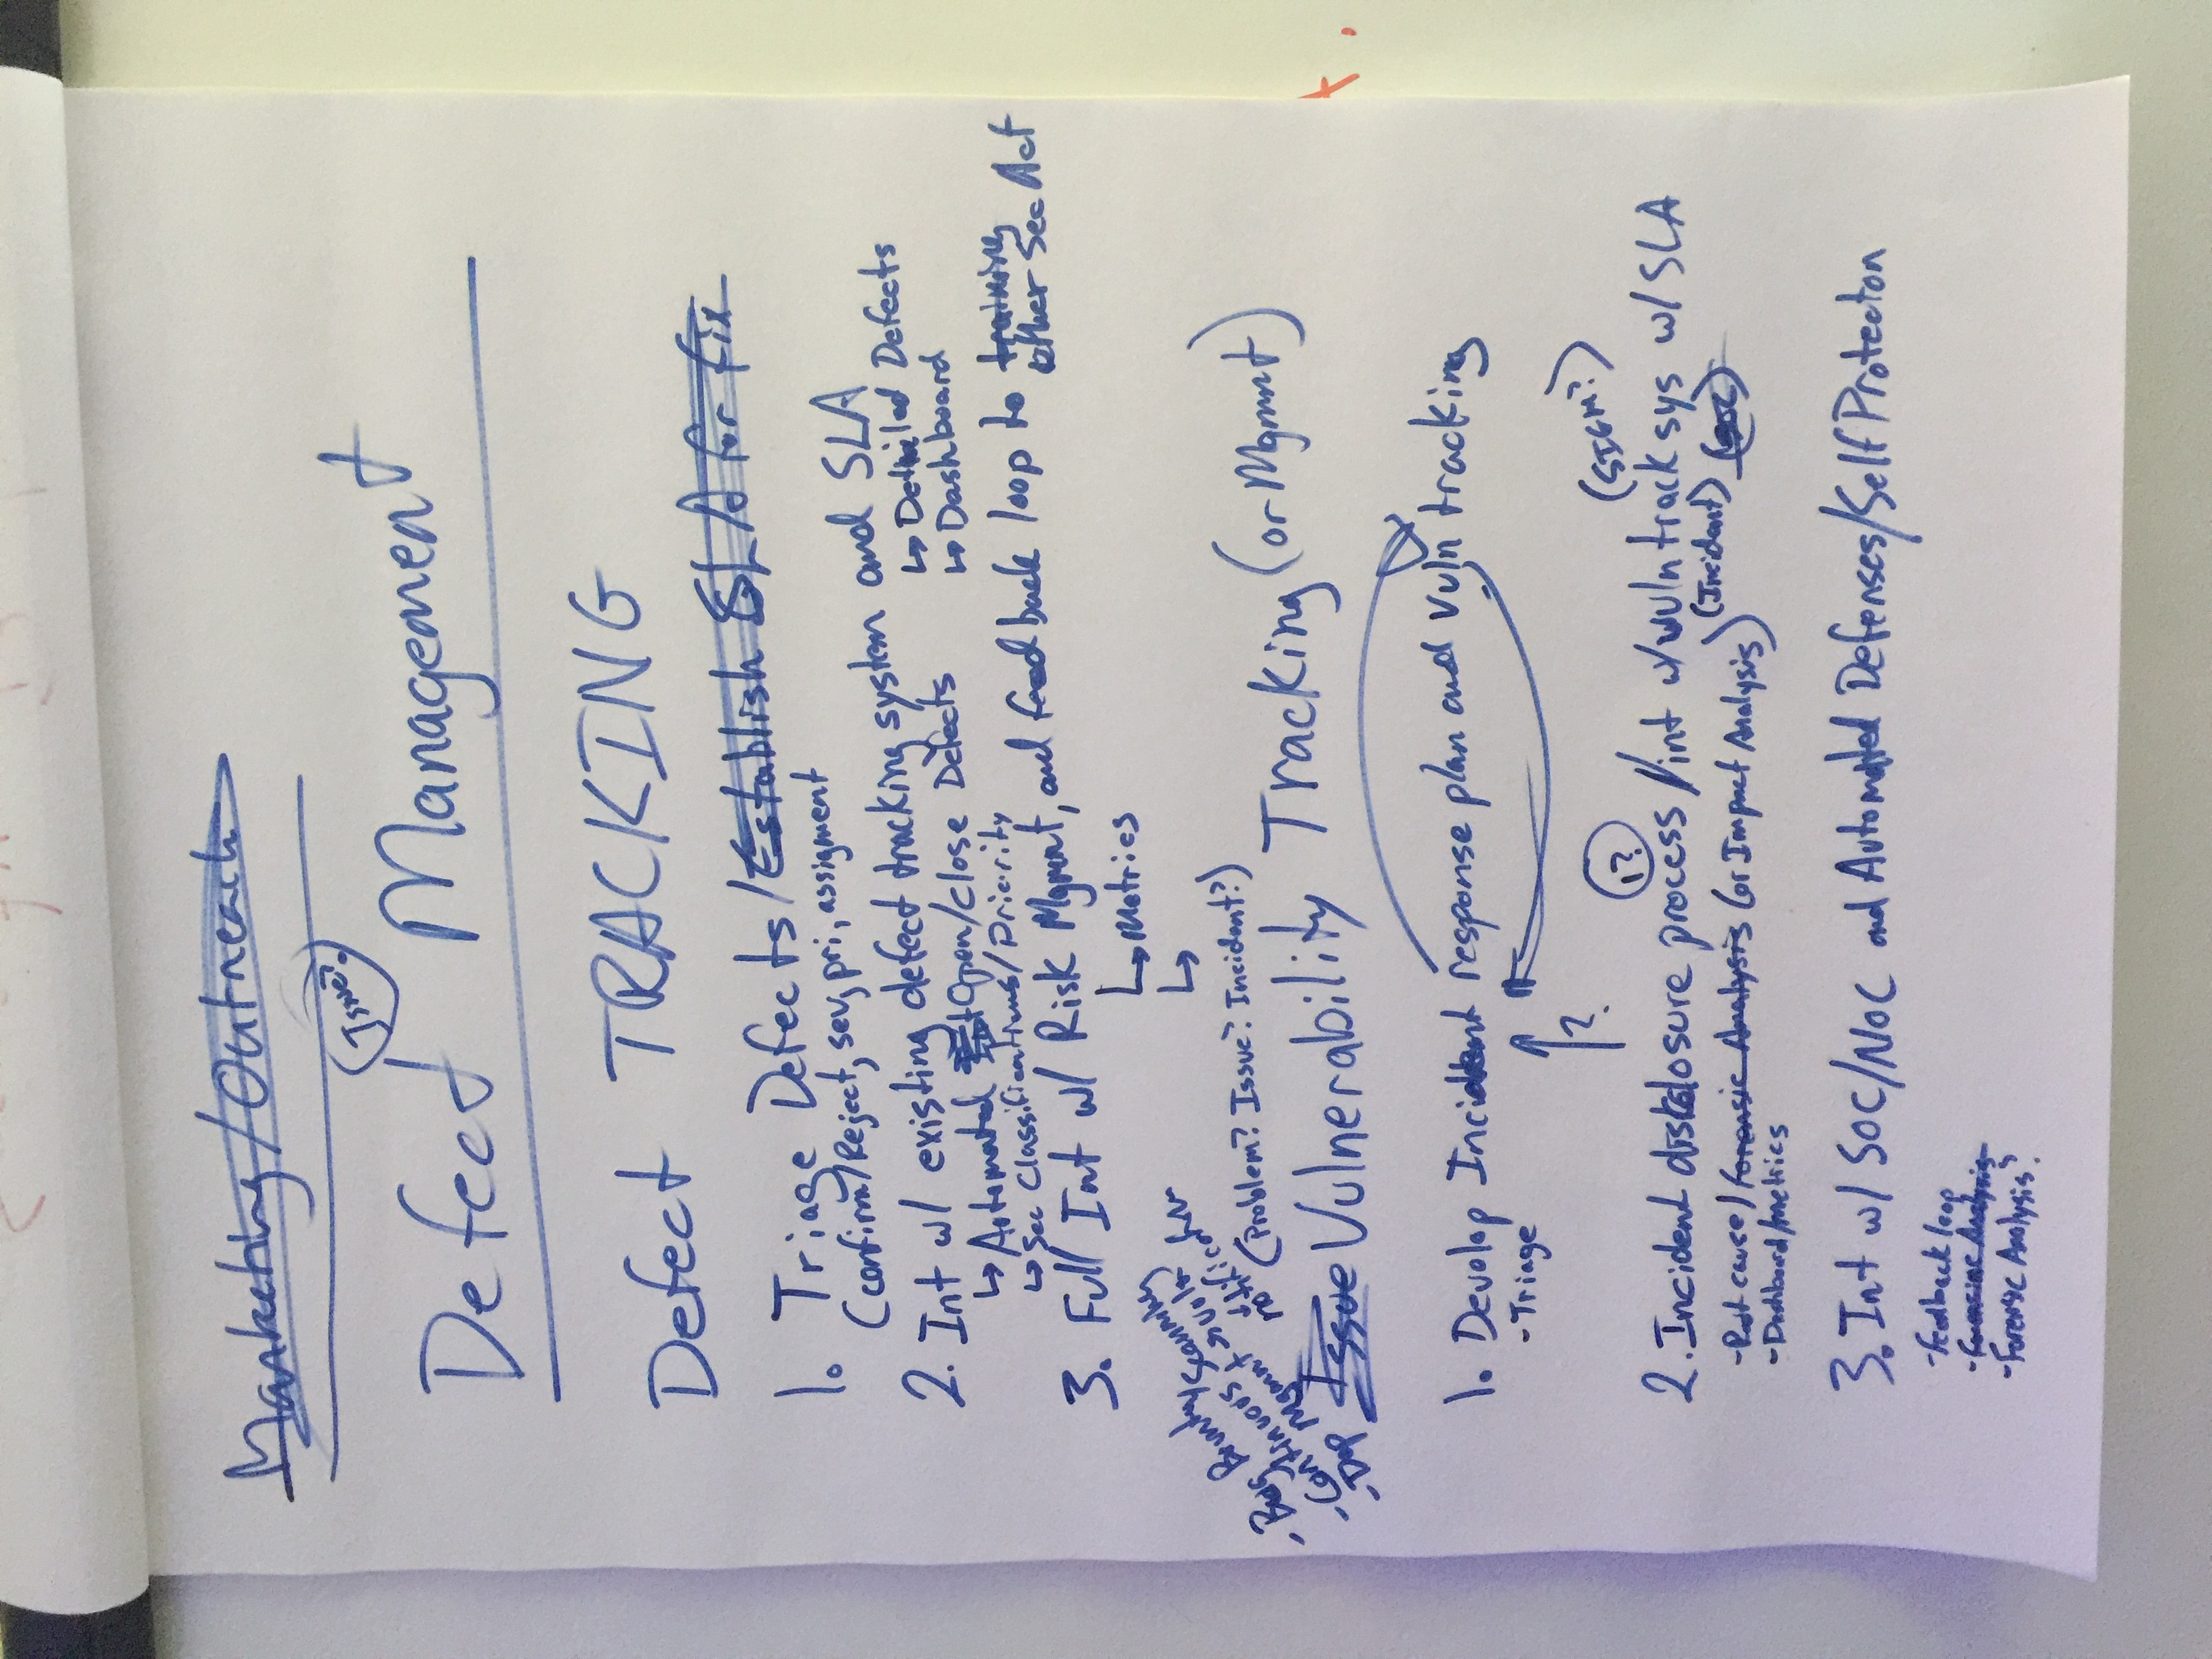 Marketing/Outreach
Issue?
Defect Management
Defect TRACKING
1. Triage Defects/Establish SLA for fix
(confirm/Reject, sev, pri, assigment
2. Int w/ existing defect tracking system and SLA
↳ Detailed Defects
↳ Automated Open/close Defects
↳ Dashboard
↳ Sec Classifications/Priority
3. Full Int w/ Risk Mgmnt, and feedback loop to training
other Sec Act
↳ Metrics
↳
- Bug Bounty
- Continuous Scanning
- Dep Mgmnt → vuln
↓
notification
(Problem? Issue? Incident?)
Issue Vulnerability Tracking (or Mgmnt)
1. Develop Incident response plan and vuln tracking
- Triage
?
1?
(SIEM?)
2. Incident disclosure process /int w/ vuln track sys w/ SLA
(Incident)
- Root cause/forensic Analysis (or Impact Analysis)
- Dashboard/metrics
3. Int w/ SOC/NOC and Automated Defenses/Self Protecton
- feedback loop
- Forensic Analysis
- Forensic Analysis?